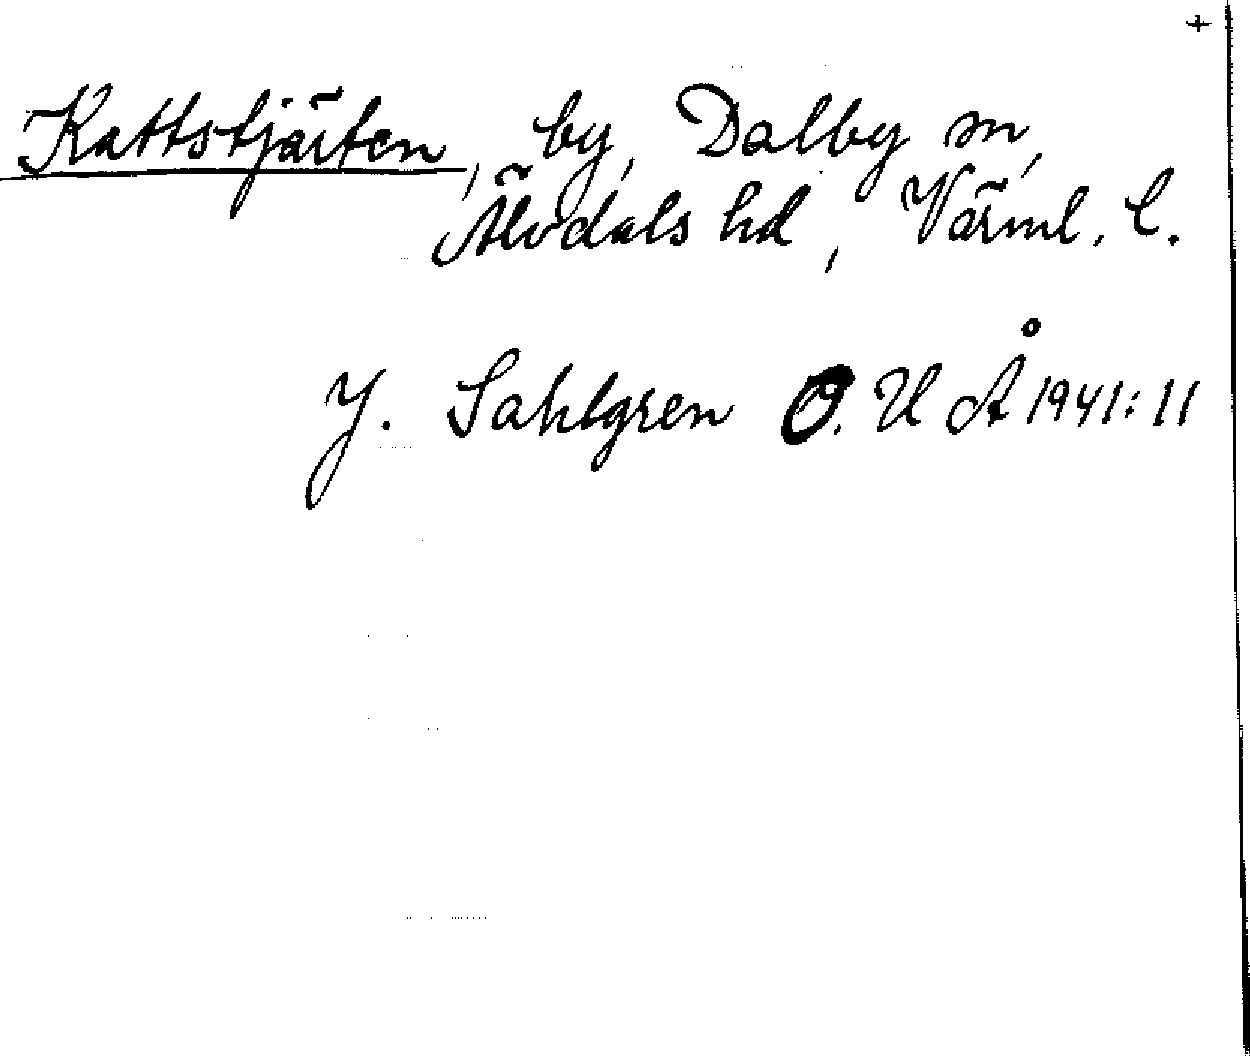 +
Kattstjärten, by, Dalby sn,
Älvdals hd, Värml. l.
J. Sahlgren O. U Å 1941: 11